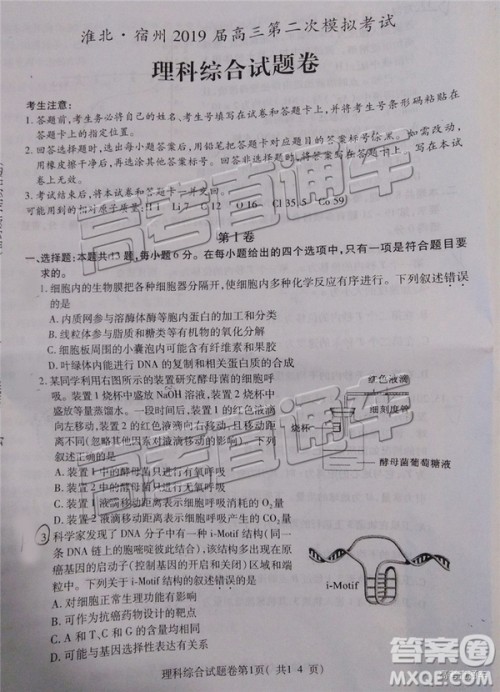 淮北·宿州2019届高三第二次模拟考试
理科综合试题卷
考生注意:
1. 答题前,考生务必将自己的姓名、考生号填写在试卷和答题卡上,并将考生号条形码粘贴在
答题卡上的指定位置。
2. 回答选择题时,选出每小题答案后,用铅笔把答题卡对应题目的答案标号涂黑。如需改动,
用橡皮擦干净后,再选涂其他答案标号。回答非选择题时,将答案写在答题卡上。写在本试
卷上无效。
3. 考试结束后,将本试卷和答题卡一并交回。
可能用到的相对原子质量: H 1 Li 7 C 12 O 16 Cl 35.5 Co 59
第Ⅰ卷
一、选择题:本题共13题,每小题6分。在每小题给出的四个选项中,只有一项是符合题目要
求的。
1. 细胞内的生物膜把各种细胞器分隔开,使细胞内能同时进行多种化学反应有序进行。下列叙述错误
的是
A. 内质网参与分泌蛋白的加工和分类
B. 线粒体参与脂肪和糖类等有机物的氧化分解
C. 细胞板周围的小囊泡内可能含有纤维素和果胶
D. 叶绿体内能进行DNA的复制和相关蛋白质的合成
2. 某同学利用右图所示的装置研究酵母菌的细胞呼
吸。装置1烧杯中盛放NaOH溶液,装置2烧杯中
盛放等量蒸馏水。一段时间后,装置1的红色液滴
向左移动,装置2的红色液滴向右移动,且移动距
离不同(忽略其他外界因素影响)。下列叙述错误
的是
A. 装置1中的酵母菌只进行有氧呼吸
B. 装置2中的酵母菌只进行无氧呼吸
C. 装置1液滴移动距离表示细胞呼吸消耗的O2量
D. 装置2液滴移动距离表示细胞呼吸产生的CO2量
红色液滴
细刻度钟
烧杯
酵母菌葡萄糖液
3 科学家发现了DNA分子中有一种i-Motif结构(同一
条DNA链上的胞嘧啶彼此结合),该结构多出现在原
癌基因的启动子(控制基因的开启和关闭)区域和端
粒中。下列关于i-Motif结构的叙述错误的是
A. 对细胞正常生理功能有影响
B. 可作为抗癌药物设计的靶点
i-Motif
理科综合试题卷第1页(共14页)
高考直通车
答案圈